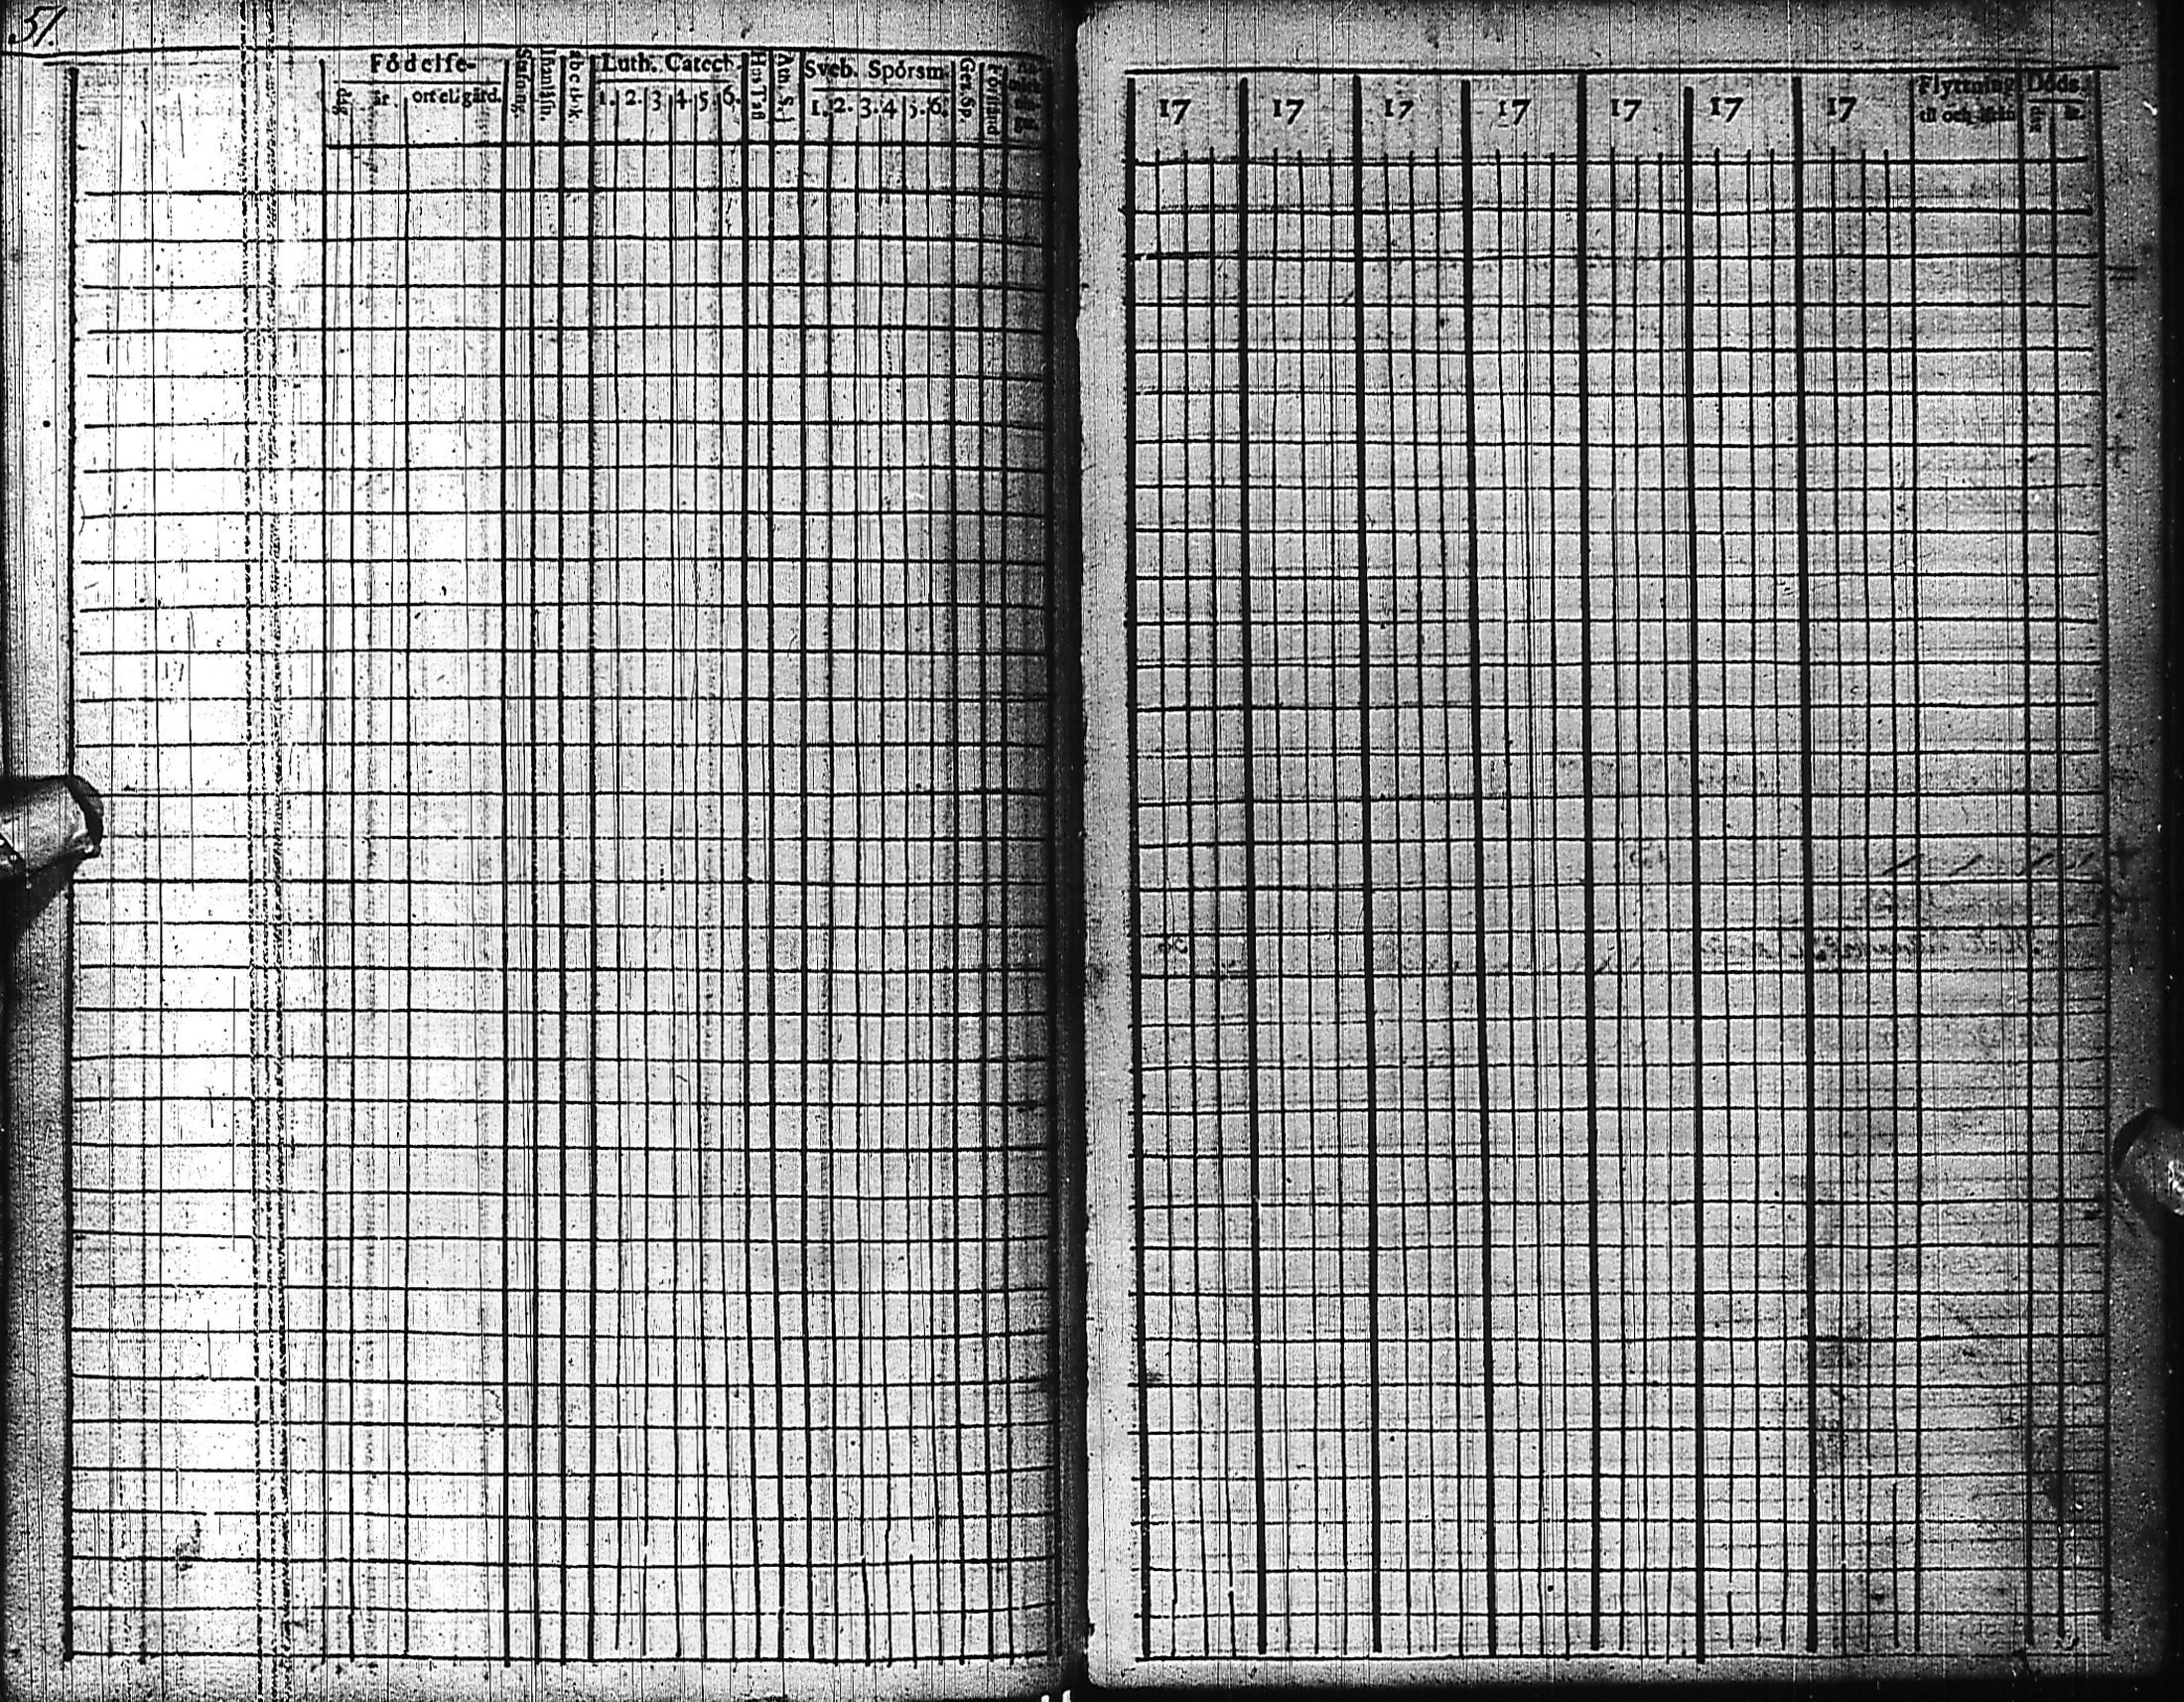 51.
Födelse-
dag
år
ort el. gård.
Stafning.
Innanläsn.
abc d. k.
Luth. Catech.
1. 2. 3 4. 5. 6.
Hus Tafl
Ath. S.
Sveb. Spörsm.
1. 2. 3. 4 5. 6.
Förstånd
17 17 17 17 17 17 17
Flyttning
til och ifrån
Döds
dag
år